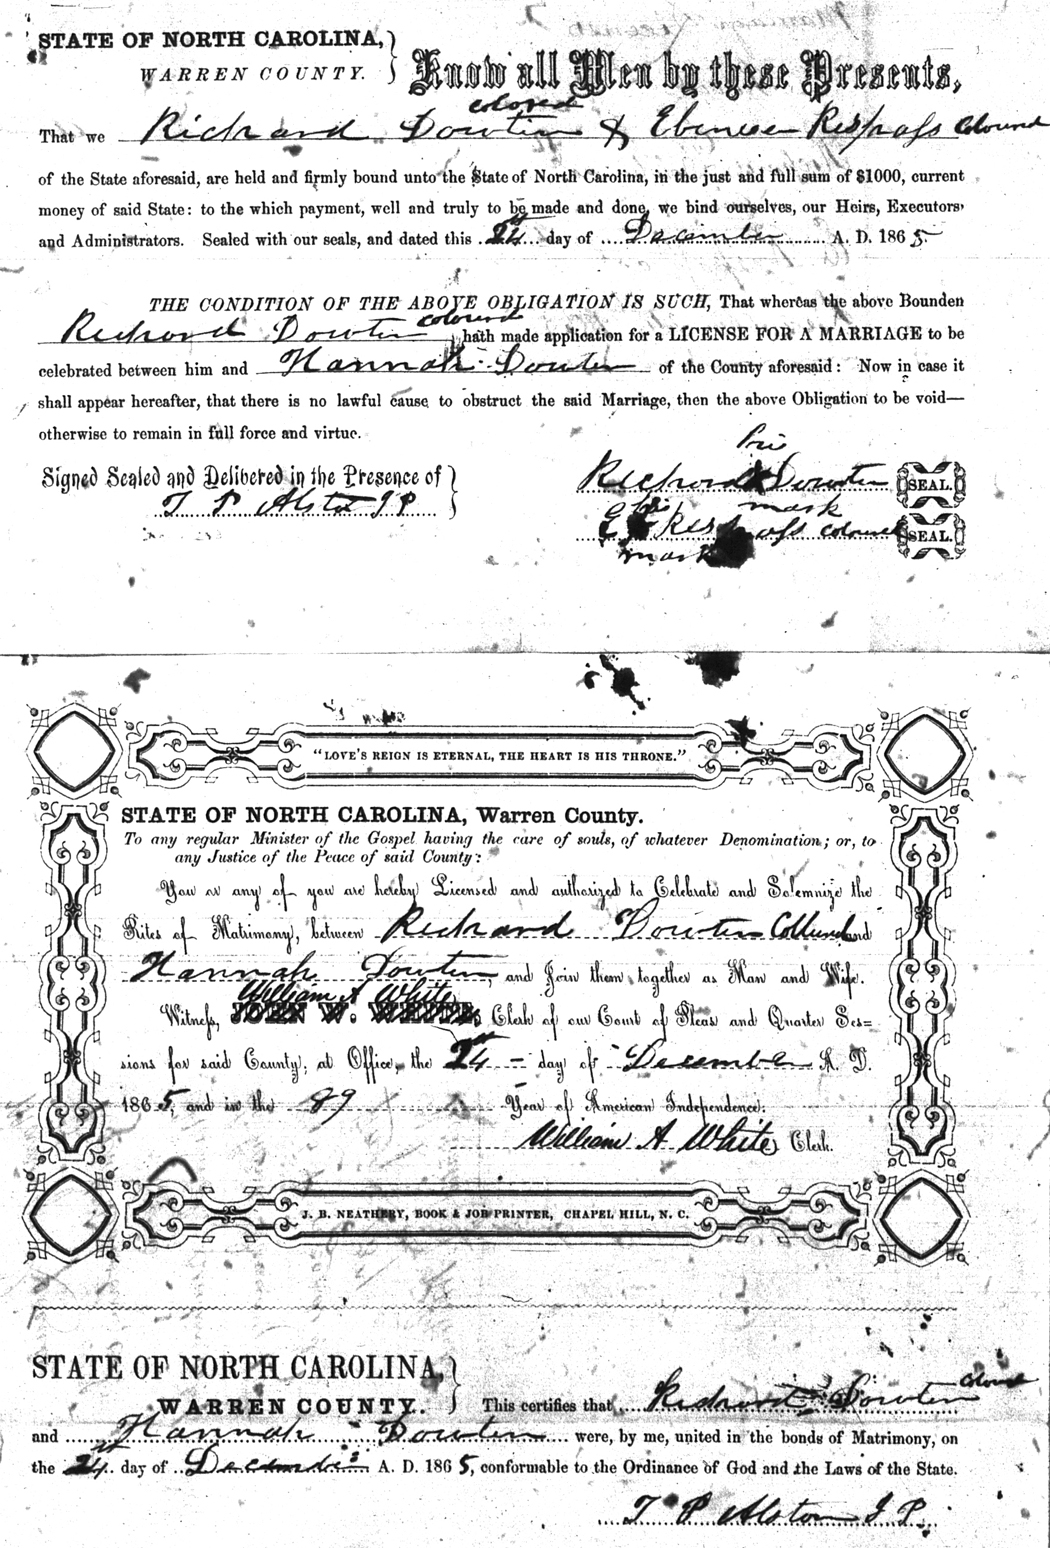 STATE OF NORTH CAROLINA,
WARREN COUNTY.
Know all Men by these Presents,
colored
That we Richard Dowtin & Ebeneser Respass Colound
of the State aforesaid, are held and firmly bound unto the State of North Carolina, in the just and full sum of $1000, current
money of said State: to the which payment, well and truly to be made and done, we bind ourselves, our Heirs, Executors
and Administrators. Sealed with our seals, and dated this 24 day of December A. D. 1865.
THE CONDITION OF THE ABOVE OBLIGATION IS SUCH, That whereas the above Bounden
Richard Dowtin colound hath made application for a LICENSE FOR A MARRIAGE to be
celebrated between him and Hannah Dowtin of the County aforesaid: Now in case it
shall appear hereafter, that there is no lawful cause to obstruct the said Marriage, then the above Obligation to be void—
otherwise to remain in full force and virtue.
his
Signed Sealed and Delibered in the Presence of
Richard X Dowtin SEAL.
T P Alston J P
mark
his
E X Respass coloured SEAL.
mark
"LOVE'S REIGN IS ETERNAL, THE HEART IS HIS THRONE."
STATE OF NORTH CAROLINA, Warren County.
To any regular Minister of the Gospel having the care of souls, of whatever Denomination; or, to
any Justice of the Peace of said County:
You or any of you are hereby Licensed and authorized to Celebrate and Solemnize the
Rites of Matrimony, between Richard Dowtin Collured and
Hannah Dowtin, and Join them together as Man and Wife.
William A White
Witness, JOHN W. WHITE, Clerk of our Court of Pleas and Quarter Ses-
sions for said County, at Office, the 24 day of December A. D.
1865, and in the 89 Year of American Independence.
William A White Clerk.
J. B. NEATHERY, BOOK & JOB PRINTER, CHAPEL HILL, N. C.
STATE OF NORTH CAROLINA,
WARREN COUNTY.
This certifies that Richard Dowtin Colound
and Hannah Dowtin were, by me, united in the bonds of Matrimony, on
the 24 day of December A. D. 1865, conformable to the Ordinance of God and the Laws of the State.
T P Alston J P.